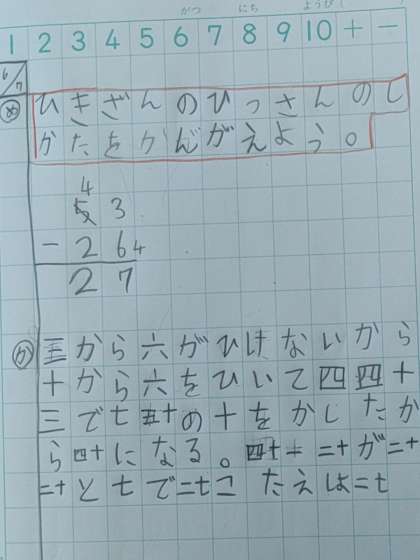 がつ にち ようび(
1 2 3 4 5 6 7 8 9 10 + −
6/7
め ひきざんのひっさんのし
かたをかんがえよう。
4
5 3
− 2 6 4
2 7
か 三から六がひけないから
十から六をひいて四四十
三で七五十の十をかしたか
ら四十になる。四十 二十が二十
二十と七で二七こたえは二七